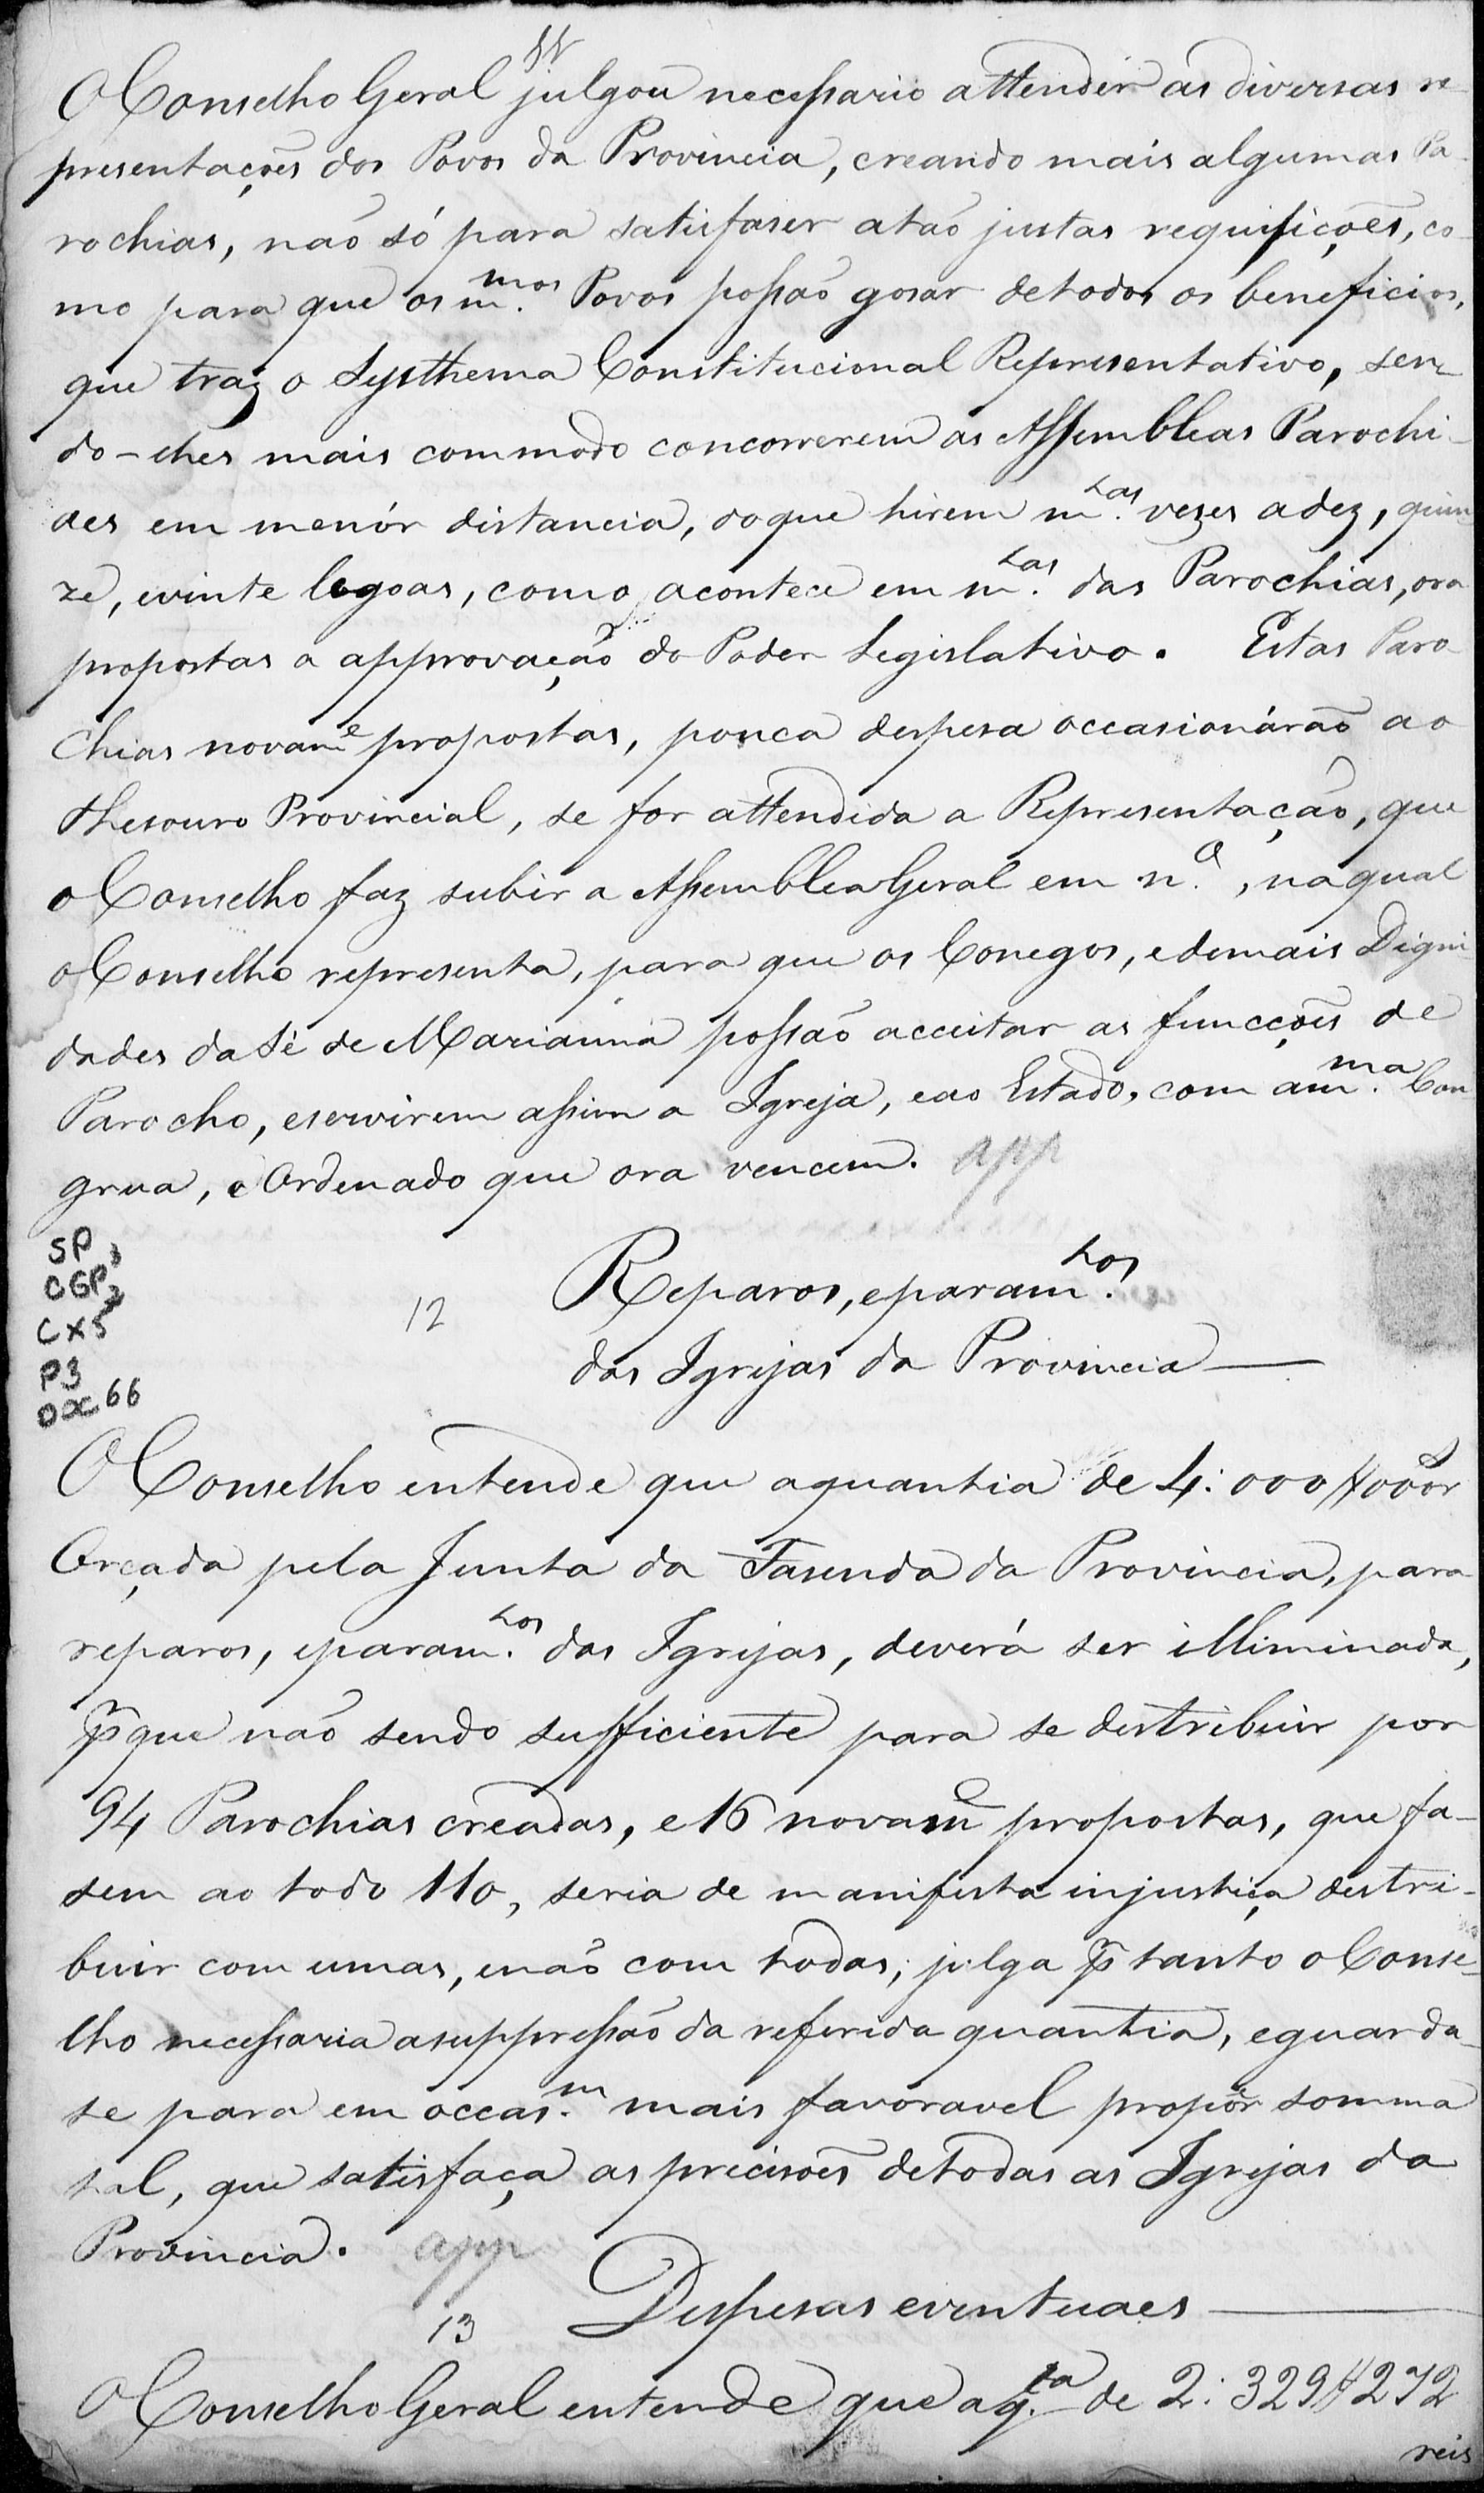 O Conselho Geral julgou necessario attender as diversas re-
presentações dos Povos da Provincia, creando mais algumas Pa-
rochias, não só para satisfaser a tão justas requisições, co-
mo para que os m.mos Povos possão gosar de todos os beneficios,
que traz o Systhema Constitucional Representativo, sen-
do-lhes mais commodo concorrerem as Assembleas Parochi-
aes em menór distancia, do que hirem m.tas vezes a dez, quin-
ze, e vinte legoas, como acontece em m.tas das Parochias, ora
propostas a approvação do Poder Legislativo. Estas Paro-
chias novam.e propostas, pouca despesa occasionárão ao
Thesouro Provincial, se for attendida a Representação, que
o Conselho faz subir a Assemblea Geral em n.o , na qual
o Conselho representa, para que os Conegos, e demais Digni-
dades da Sé de Marianna possão acceitar as funcções de
Parocho, e servirem assim a Igreja, e ao Estado, com a m.ma Con-
grua, e Ordenado que ora vencem. app
SP
CGP3
CX5
P3
DOC 66
12 Reparos, e param.tos
das Igrejas da Provincia —
O Conselho entende que a quantia de 4:000$000 r
Orçada pela Junta da Fasenda da Provincia, para
reparos, e param.tos das Igrejas, deverá ser illiminada,
p que não sendo sufficiente para se distribuir por
94 Parochias creadas, e 16 novam.e propostas, que fa-
sem ao todo 110, seria de manifesta injustiça destri-
buir com umas, e não com todas; julga p tanto o Conse-
lho necessaria a suppressão da referida quantia, e guarda-
se para em occas.m mais favoravel propôr somma
tal, que satisfaça as precisões de todas as Igrejas da
Provincia. app
13 Despesas eventuaes —
O Conselho Geral entende que a q.ta de 2:329$272
reis